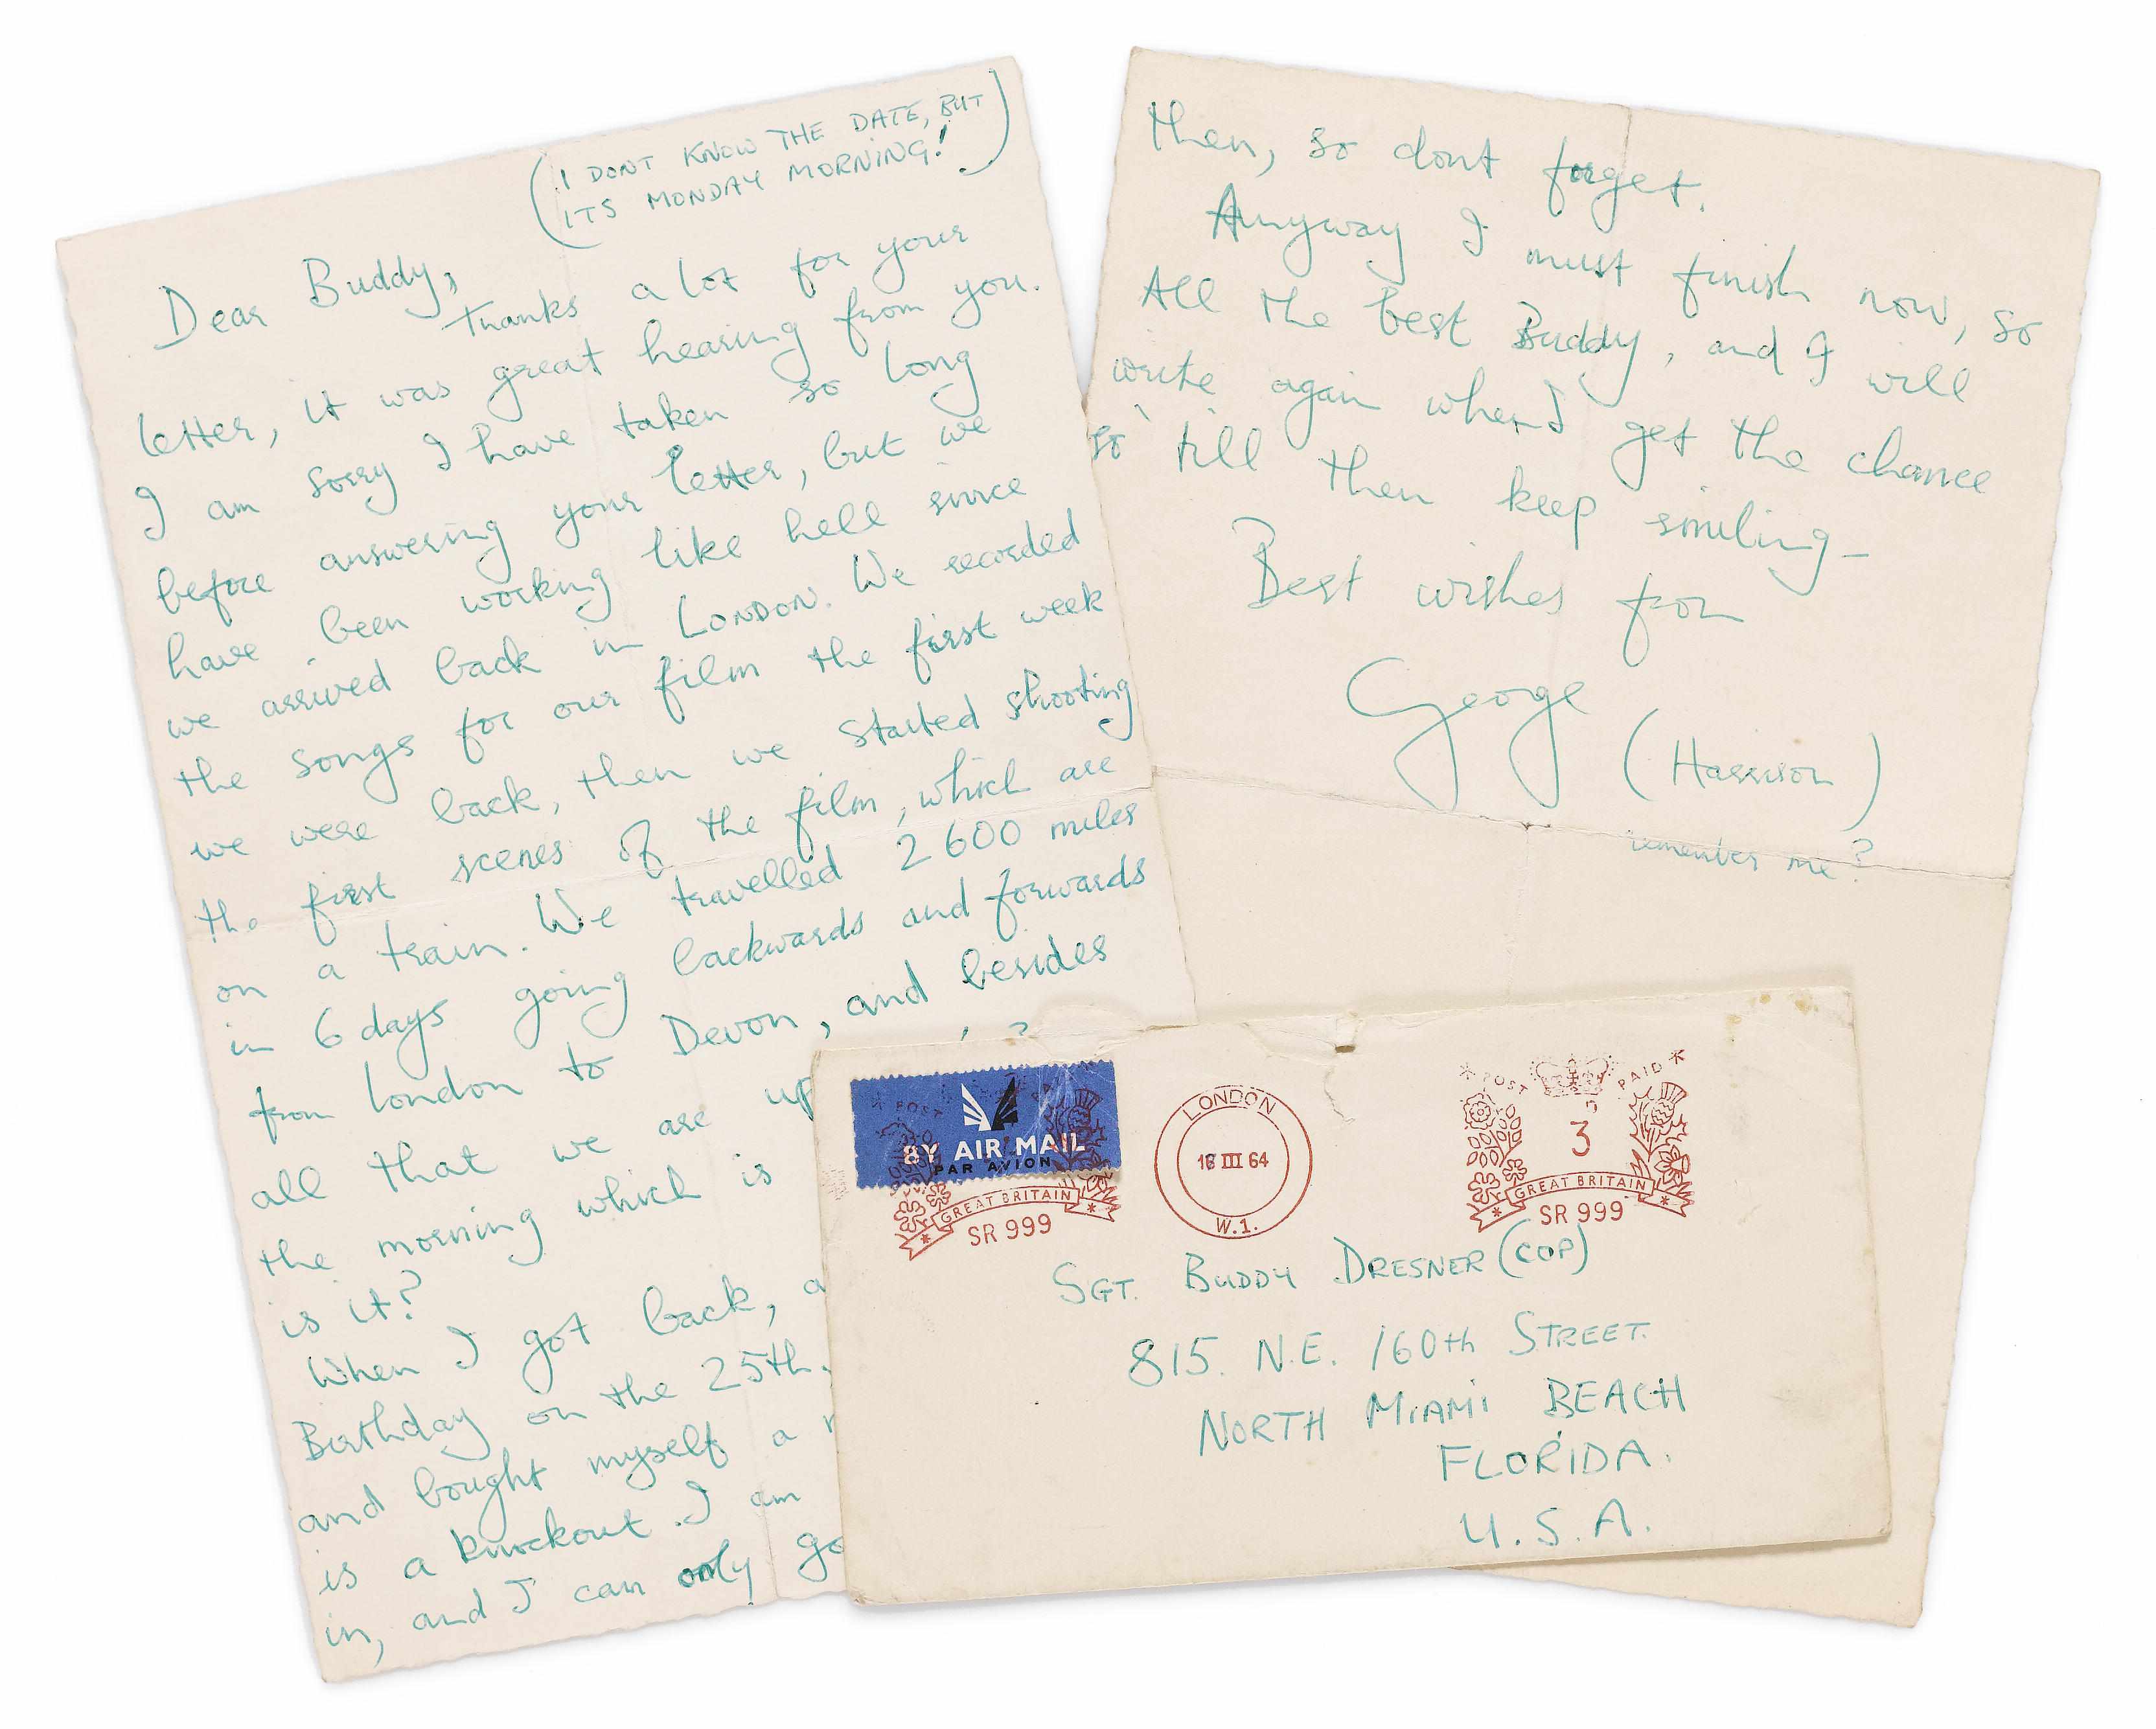 (I DONT KNOW THE DATE, BUT
ITS MONDAY MORNING!)
Dear Buddy,
Thanks a lot for your
letter, it was great hearing from you.
I am sorry I have taken so long
before answering your letter, but we
have been working like hell since
we arrived back in LONDON. We recorded
the songs for our film the first week
we were back, then we started shooting
the first scenes of the film, which are
on a train. We travelled 2600 miles
in 6 days going backwards and forwards
from London to Devon, and besides
all that we are up
the morning which is
is it?
When I got back,
Birthday on the 25th.
and bought myself a
is a knockout. I am
in, and I can only go
then, so dont forget.
Anyway I must finish now, so
All the best Buddy, and I will
write again when I get the chance
so till then keep smiling-
Best wishes from
George
(Harrison)
remember me?
BY AIR MAIL
PAR AVION
POST
GREAT BRITAIN
SR 999
LONDON
III 64
W.1.
POST PAID
3
GREAT BRITAIN
SR 999
SGT. BUDDY DRESNER (COP)
815. N.E. 160th STREET.
NORTH MIAMI BEACH
FLORIDA.
U.S.A.